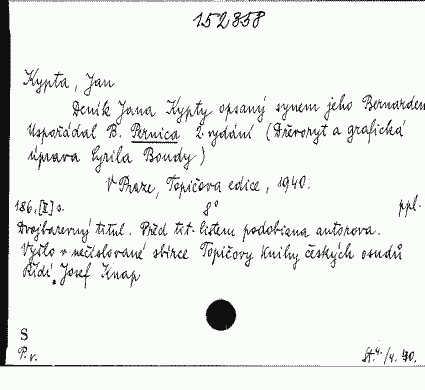 152858
Kypta, Jan
Deník Jana Kypty opsaný synem jeho Bernardem
Uspořádal B. Pernica 2. vydání (Dřevoryt a grafická
úprava Cyrila Boudy)
V Praze, Topičova edice, 1940.
186, [II] s. 8° ppl.
Dvojbarevný titul. Před tit. listem podobizna autorova.
Vyšlo v nečíslované sbírce Topičovy knihy českých osudů
Řídí Josef Knap
S
P. v. St. 4./4. 40.